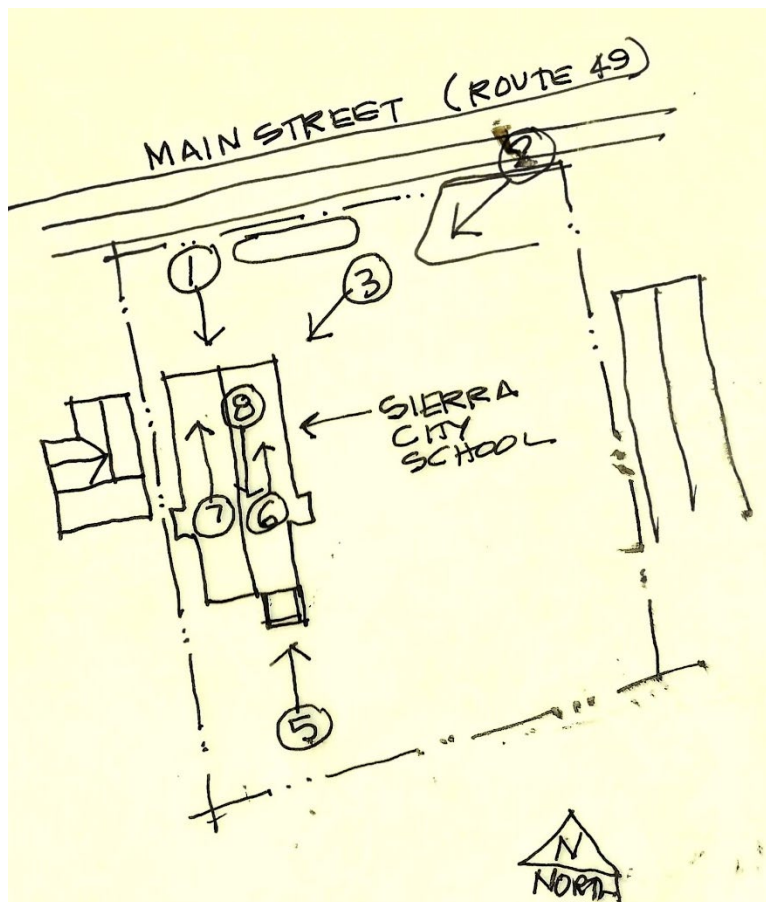 MAIN STREET (ROUTE 49)
2
1
3
8
SIERRA
CITY
SCHOOL
7
6
5
N
NORTH